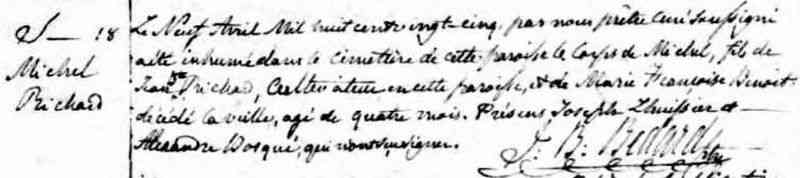 S— 18
Michel
Richard
Le Neuf Avril Mil huit cent vingt-cinq, par nous prêtre curé soussigné
a été inhumé dans le cimetière de cette paroisse le corps de Michel, fils de
Jean Bte Richard, Cultivateur en cette paroisse, et de Marie Françoise Benoit
décédé la veille, agé de quatre mois. Présens Joseph Lhuissier et
Alexandre Bosqué, qui n'ont su signer.
J: B: Bédard ptre